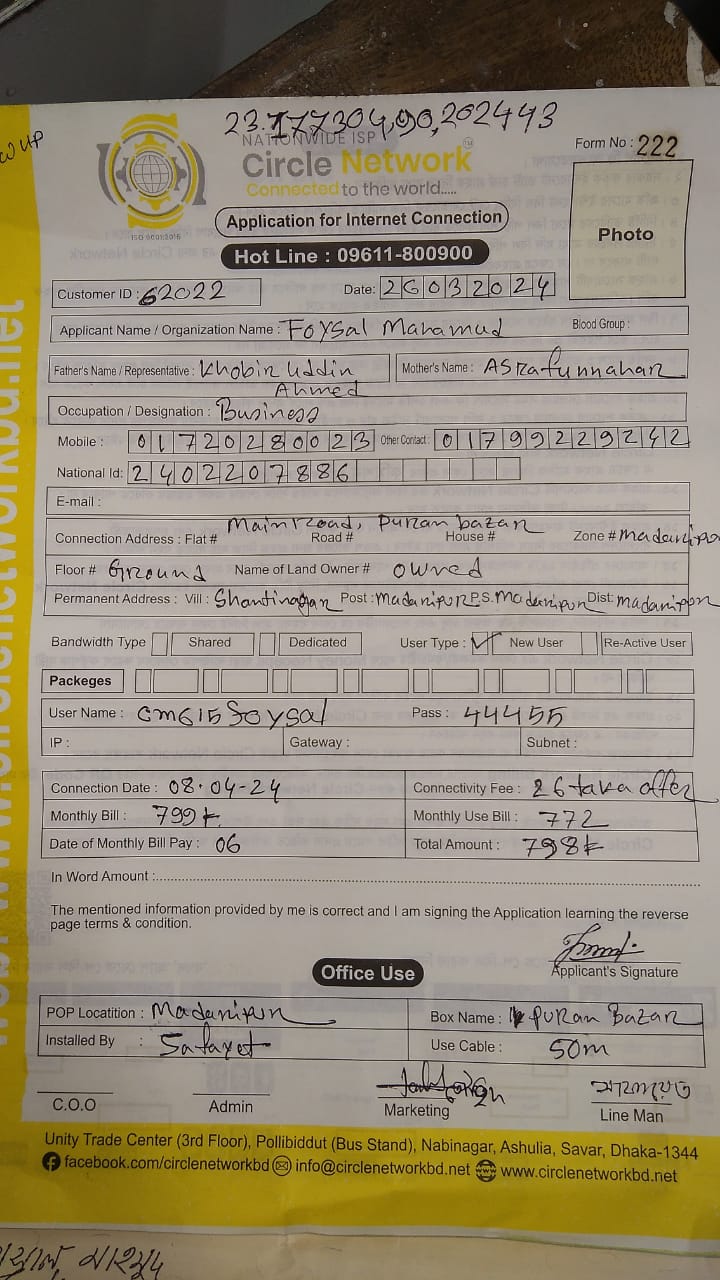 23.177304,90,202443
NATIONWIDE ISP
Circle Network
Connected to the world.....
ISO 9001:2015
Form No : 222
Photo
Application for Internet Connection
Hot Line : 09611-800900
Customer ID : 62022 Date: 26032024
Applicant Name / Organization Name : Foysal Mahamud Blood Group :
Father's Name / Representative : Khobir Uddin Ahmed Mother's Name : Asrafunnahar
Occupation / Designation : Business
Mobile : 01720280023 Other Contact : 01799229242
National Id: 2402207886
E-mail :
Main road, puran bazar
Connection Address : Flat # Road # House # Zone # madaripo
Floor # Ground Name of Land Owner # owned
Permanent Address : Vill : Shantinagar Post : Madaripur P.S. Madaripur Dist: madaripur
Bandwidth Type Shared Dedicated User Type : ✓ New User Re-Active User
Packeges
User Name : cm615foysal Pass : 44455
IP : Gateway : Subnet :
Connection Date : 08.04-24 Connectivity Fee : 26 taka offer
Monthly Bill : 799 Monthly Use Bill : 772
Date of Monthly Bill Pay : 06 Total Amount : 798
In Word Amount :
The mentioned information provided by me is correct and I am signing the Application learning the reverse
page terms & condition.
Applicant's Signature
Office Use
POP Locatition : Madaripur Box Name : Puran Bazar
Installed By : Safayet Use Cable : 50m
C.O.O Admin Marketing Line Man
Unity Trade Center (3rd Floor), Pollibiddut (Bus Stand), Nabinagar, Ashulia, Savar, Dhaka-1344
facebook.com/circlenetworkbd info@circlenetworkbd.net www.circlenetworkbd.net